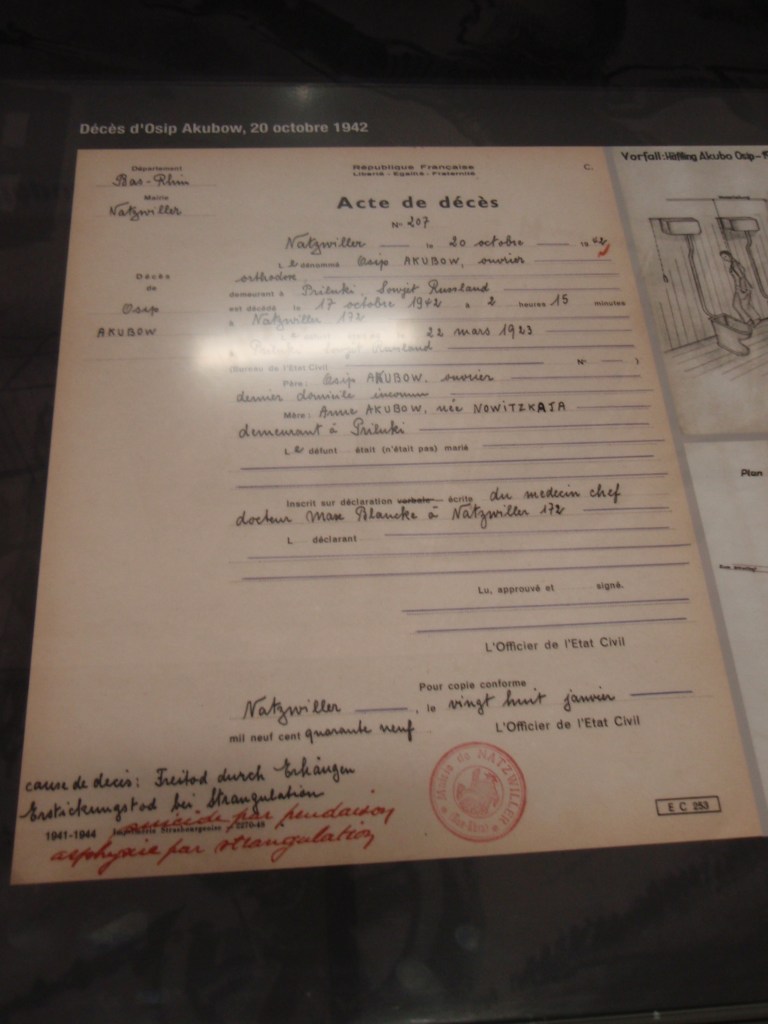 Décès d'Osip Akubow, 20 octobre 1942
Département
Bas-Rhin
Mairie
Natzwiller
République Française
Liberté - Egalité - Fraternité
C.
Acte de décès
N° 207
Natzwiller le 20 octobre 1942
Décès
de
Osip
AKUBOW
L e dénommé Osip AKUBOW, ouvrier
orthodox
demeurant à Priluki, Sowjet Russland
est décédé le 17 octobre 1942 à 2 heures 15 minutes
à Natzwiller 172
22 mars 1923
à Priluki, Sowjet Russland
(Bureau de l'Etat Civil N° )
Père: Osip AKUBOW, ouvrier
dernier domicile inconnu
Mère: Anne AKUBOW, née NOWITZKAJA
demeurant à Priluki
L e défunt était (n'était pas) marié
Inscrit sur déclaration verbale écrite du medecin chef
docteur Max Blancke à Natzwiller 172
L déclarant
Lu, approuvé et signé.
L'Officier de l'Etat Civil
Pour copie conforme
Natzwiller, le vingt huit janvier
mil neuf cent quarante neuf
L'Officier de l'Etat Civil
cause de decès: Freitod durch Erhängen
Erstickungstod bei Strangulation
suicide par pendaison
1941-1944 Imprimerie Strasbourgeoise
asphyxie par strangulation
Mairie de NATZWILLER
(Bas-Rhin)
E C 253
Vorfall: Häftling Akubo Osip -
Plan